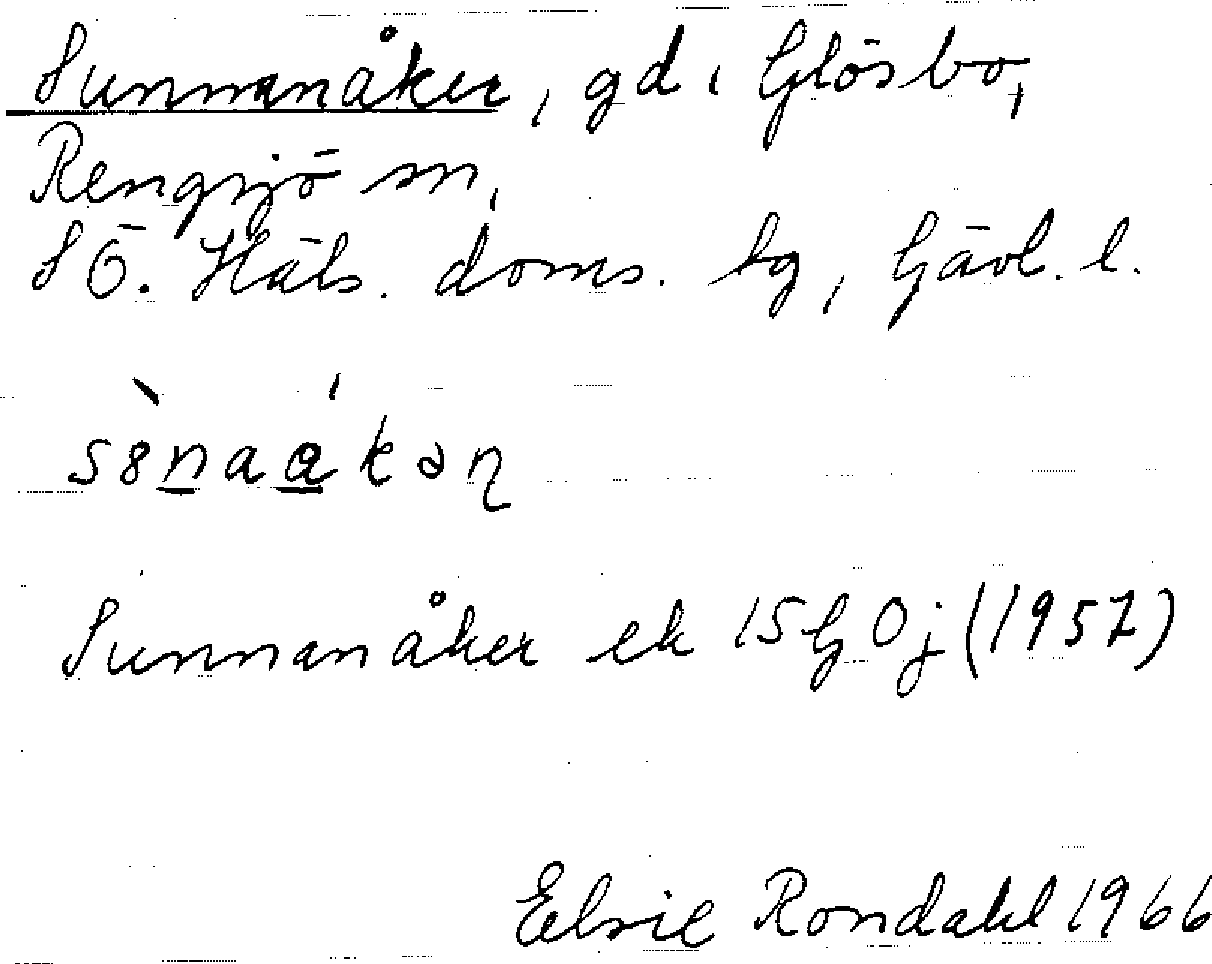 Sunnanåker, gd i Glösbo,
Rengsjö sn,
SÖ. Häls. doms. tg, Gävl. l.
s8̀naákən̡
Sunnanåker ek 15G 0j (1957)
Elsie Rondahl 1966